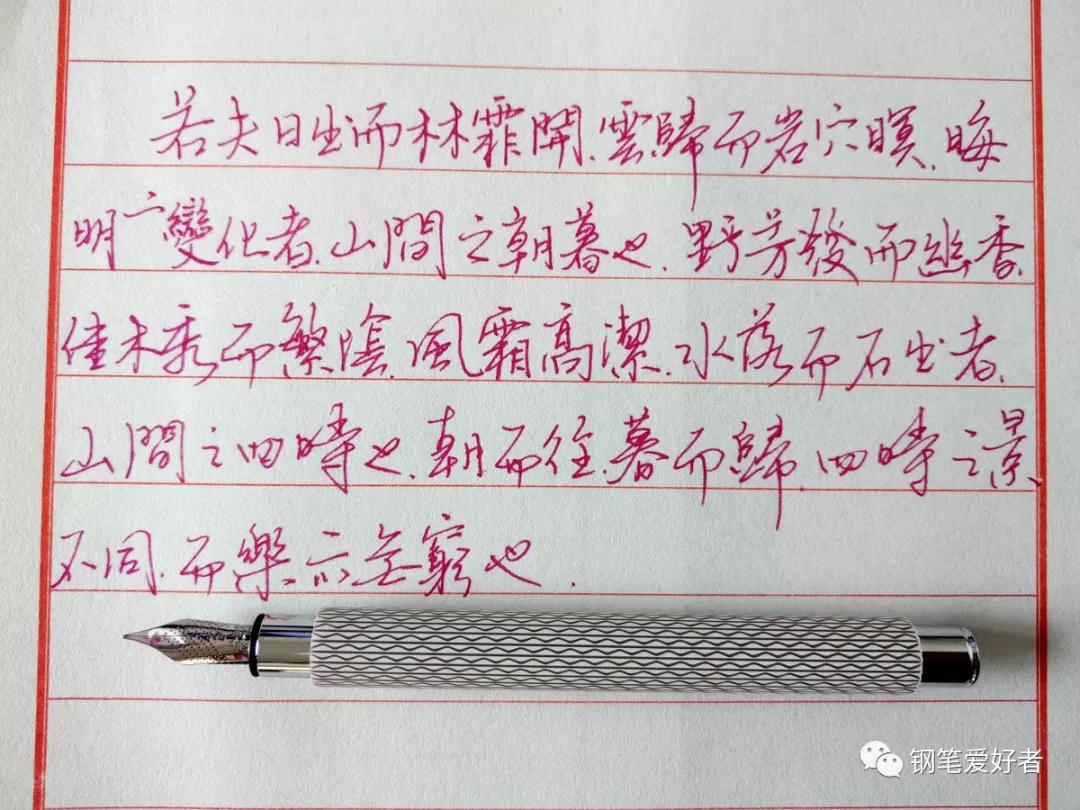 若夫日出而林霏開、雲歸而岩穴暝、晦
明變化者、山間之朝暮也、野芳發而幽香、
佳木秀而繁陰、風霜高潔、水落而石出者、
山間之四時也、朝而往、暮而歸、四時之景
不同、而樂亦無窮也.
钢笔爱好者